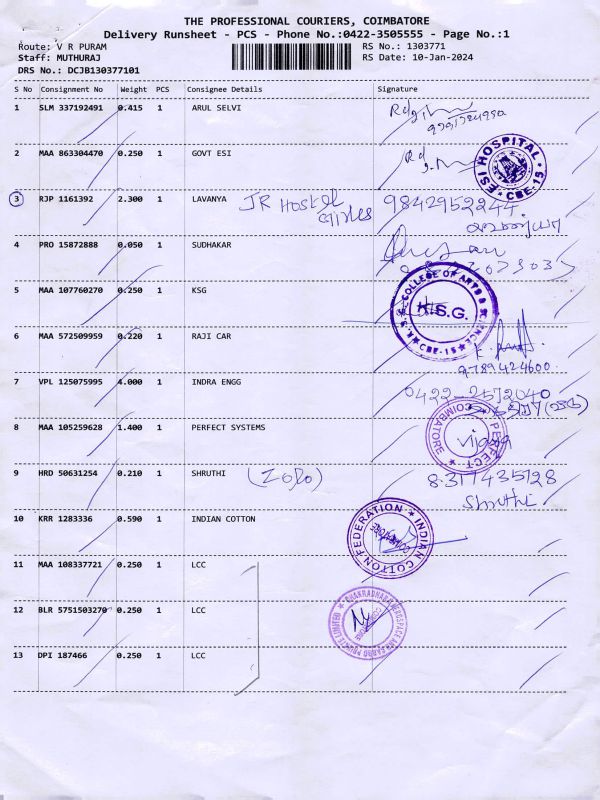 THE PROFESSIONAL COURIERS, COIMBATORE
Delivery Runsheet - PCS - Phone No.:0422-3505555 - Page No.:1
Route: V R PURAM RS No.: 1303771
Staff: MUTHURAJ RS Date: 10-Jan-2024
DRS No.: DCJB130377101
S No Consignment No Weight PCS Consignee Details Signature
1 SLM 337192491 0.415 1 ARUL SELVI
2 MAA 863304470 0.250 1 GOVT ESI
ESI HOSPITAL CBE-15
3 RJP 1161392 2.300 1 LAVANYA JR Hostel 9842952244
4 PRO 15872888 0.050 1 SUDHAKAR
5 MAA 107760270 0.250 1 KSG
K.S.G. COLLEGE OF ARTS & SCIENCE CBE-15
K.S.G.
6 MAA 572509959 0.220 1 RAJI CAR
9789424600
7 VPL 125075995 4.000 1 INDRA ENGG 0422-2572040
8 MAA 105259628 1.400 1 PERFECT SYSTEMS
PERFECT COIMBATORE
9 HRD 50631254 0.210 1 SHRUTHI (ZOHO) 8.3177435728
Shruthi
10 KRR 1283336 0.590 1 INDIAN COTTON
INDIAN COTTON FEDERATION COIMBATORE
11 MAA 108337721 0.250 1 LCC
12 BLR 5751503270 0.250 1 LCC
PRIVATE LIMITED
13 DPI 187466 0.250 1 LCC